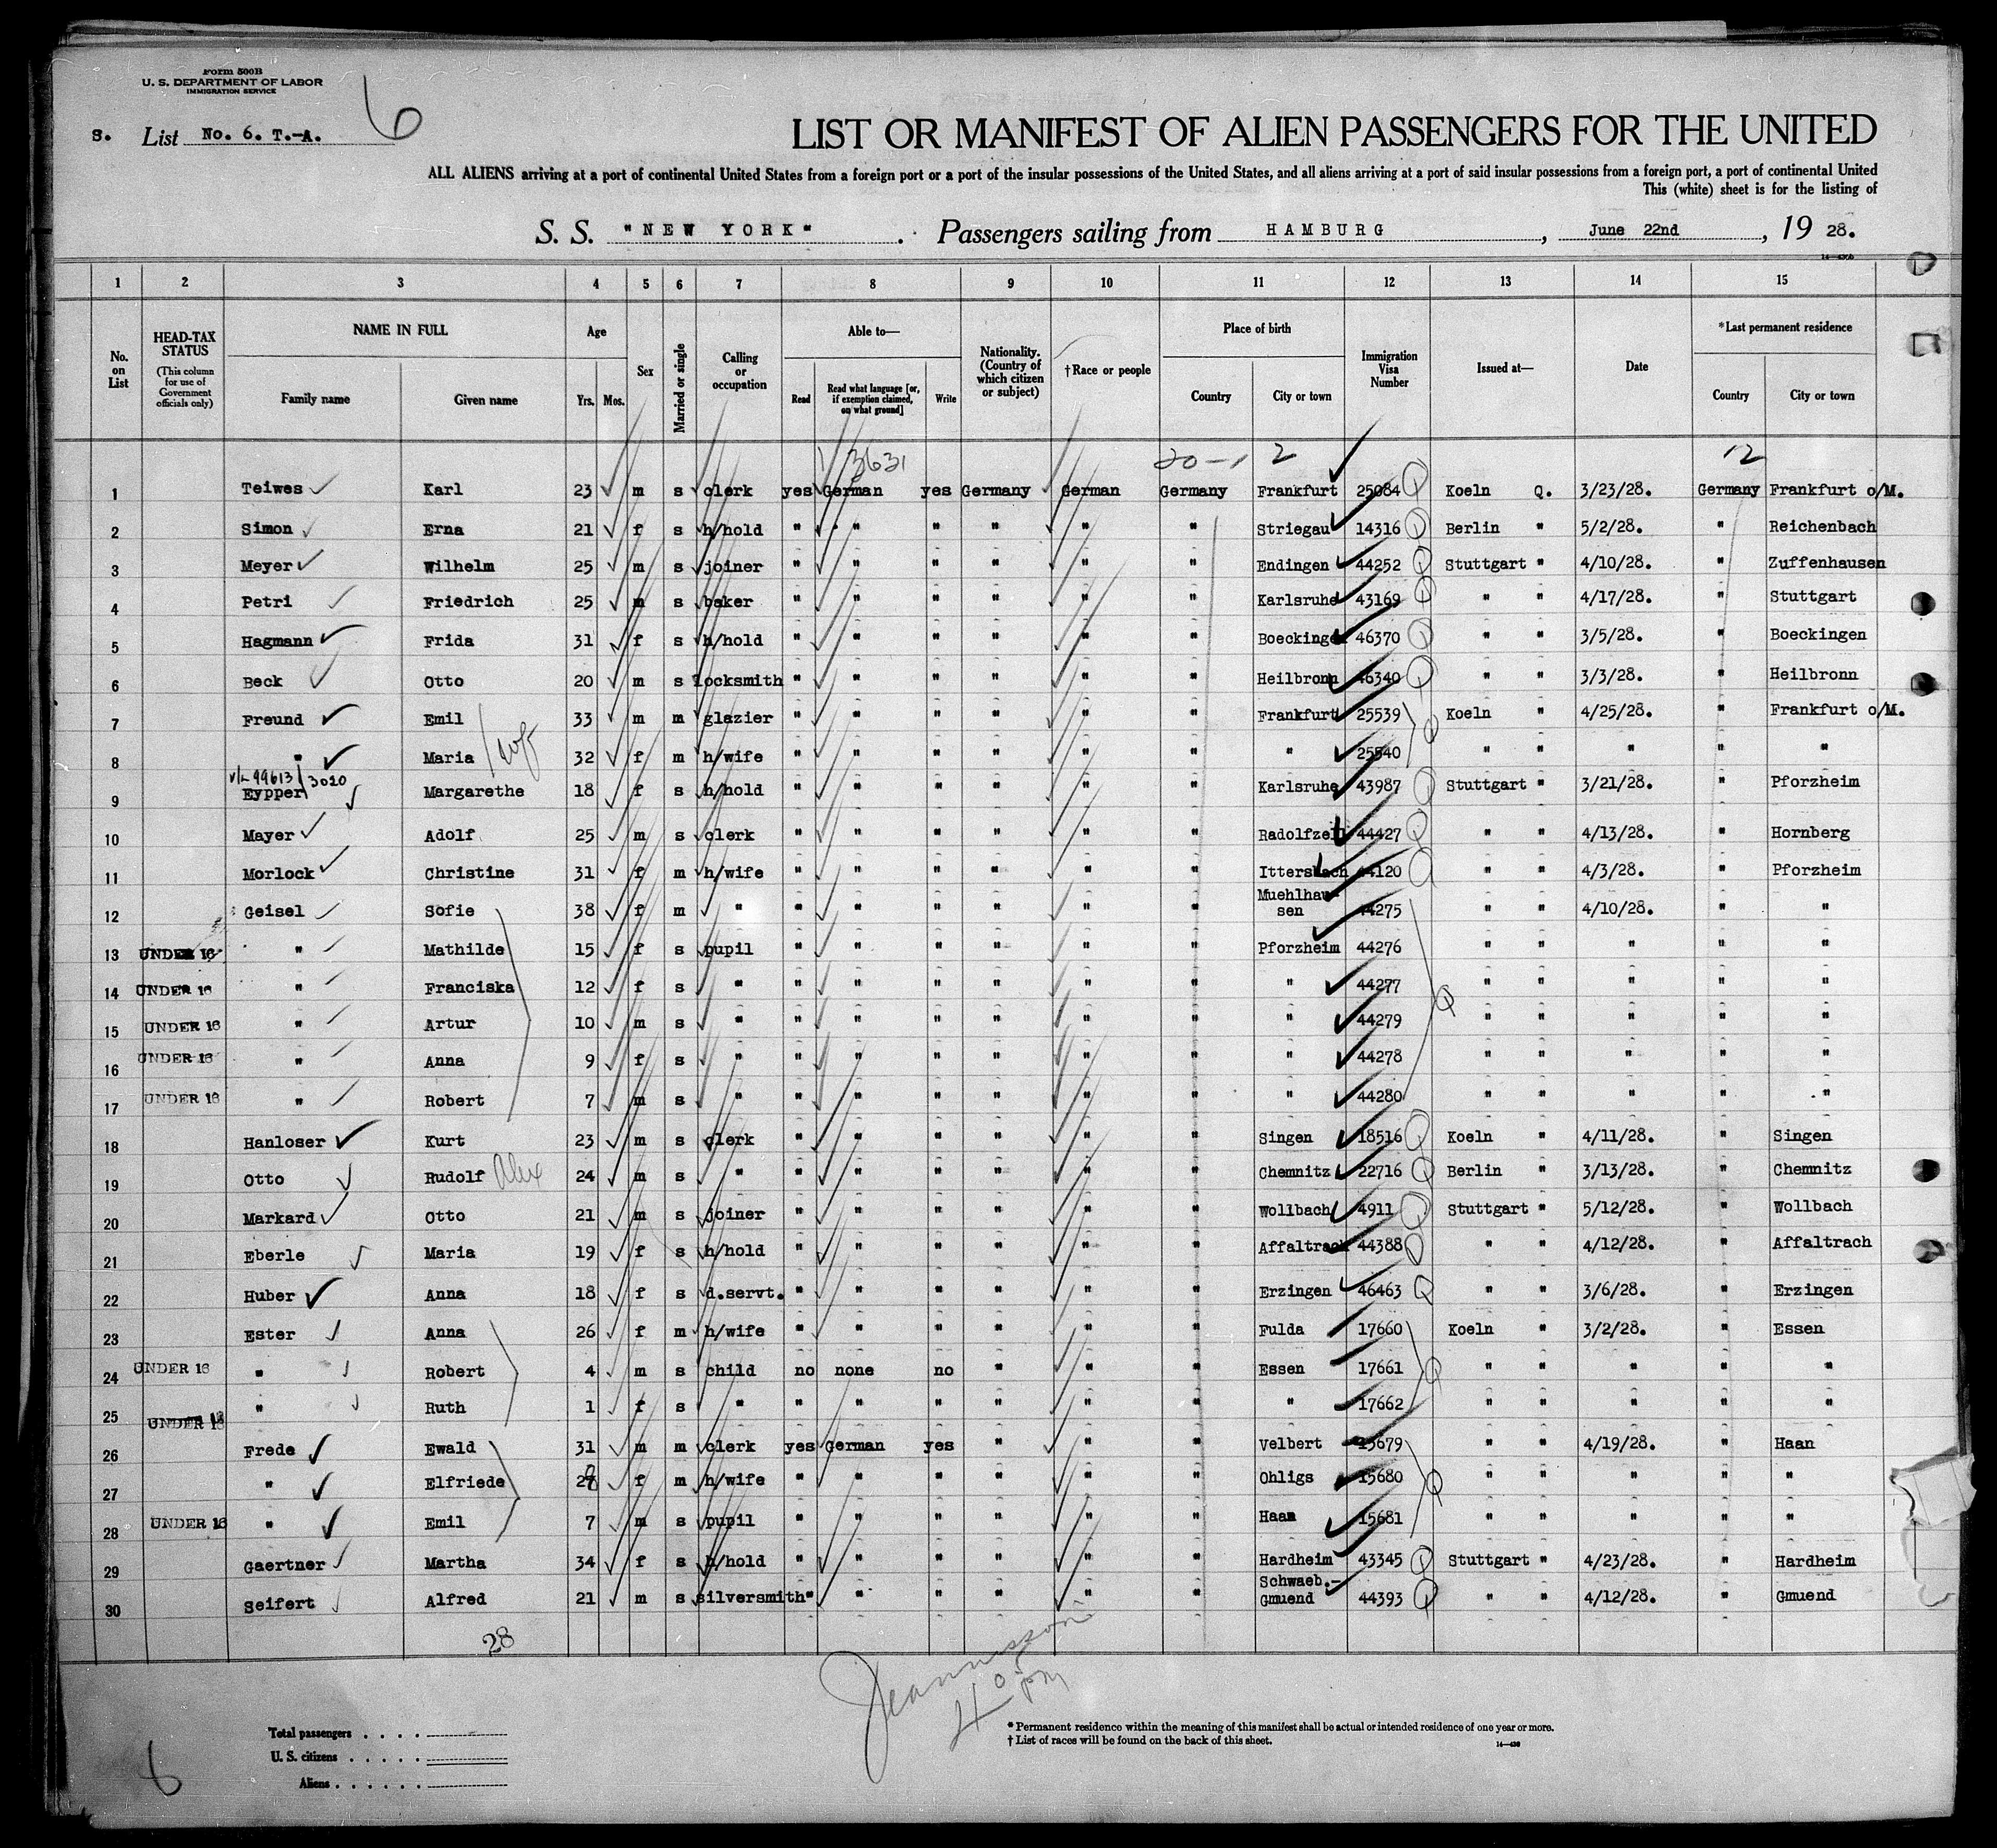 Form 500B
U. S. DEPARTMENT OF LABOR
IMMIGRATION SERVICE
6
S. List No. 6. T.-A.
LIST OR MANIFEST OF ALIEN PASSENGERS FOR THE UNITED
ALL ALIENS arriving at a port of continental United States from a foreign port or a port of the insular possessions of the United States, and all aliens arriving at a port of said insular possessions from a foreign port, a port of continental United
This (white) sheet is for the listing of
S. S. "NEW YORK". Passengers sailing from HAMBURG, June 22nd, 19 28.
1 2 3 4 5 6 7 8 9 10 11 12 13 14 15
No. on List
HEAD-TAX STATUS (This column for use of Government officials only)
NAME IN FULL Family name Given name
Age Yrs. Mos.
Sex
Married or single
Calling or occupation
Able to— Read Read what language [or, if exemption claimed, on what ground] Write
Nationality. (Country of which citizen or subject)
†Race or people
Place of birth Country City or town
Immigration Visa Number
Issued at—
Date
*Last permanent residence Country City or town
3631 20-1 2 12
1 Teiwes Karl 23 m s clerk yes German yes Germany German Germany Frankfurt 25084 Q Koeln Q. 3/23/28. Germany Frankfurt o/M.
2 Simon Erna 21 f s h/hold " " " " " " Striegau 14316 Q Berlin " 5/2/28. " Reichenbach
3 Meyer Wilhelm 25 m s joiner " " " " " " Endingen 44252 Q Stuttgart " 4/10/28. " Zuffenhausen
4 Petri Friedrich 25 m s baker " " " " " " Karlsruhe 43169 Q " " 4/17/28. " Stuttgart
5 Hagmann Frida 31 f s h/hold " " " " " " Boeckingen 46370 Q " " 3/5/28. " Boeckingen
6 Beck Otto 20 m s locksmith " " " " " " Heilbronn 46340 Q " " 3/3/28. " Heilbronn
7 Freund Emil 33 m m glazier " " " " " " Frankfurt 25539 Q Koeln " 4/25/28. " Frankfurt o/M.
8 " Maria 32 f m h/wife " " " " " " " 25540 " " " " "
v/L 99613 3020
9 Eypper Margarethe 18 f s h/hold " " " " " " Karlsruhe 43987 Q Stuttgart " 3/21/28. " Pforzheim
10 Mayer Adolf 25 m s clerk " " " " " " Radolfzell 44427 Q " " 4/13/28. " Hornberg
11 Morlock Christine 31 f m h/wife " " " " " " Ittersbach 44120 Q " " 4/3/28. " Pforzheim
12 Geisel Sofie 38 f m " " " " " " " Muehlhau-sen 44275 " " 4/10/28. " "
13 UNDER 16 " Mathilde 15 f s pupil " " " " " " Pforzheim 44276 " " " " "
14 UNDER 16 " Franciska 12 f s " " " " " " " " 44277 Q " " " " "
15 UNDER 16 " Artur 10 m s " " " " " " " " 44279 " " " " "
16 UNDER 16 " Anna 9 f s " " " " " " " " 44278 " " " " "
17 UNDER 16 " Robert 7 m s " " " " " " " " 44280 " " " " "
18 Hanloser Kurt 23 m s clerk " " " " " " Singen 18516 Q Koeln " 4/11/28. " Singen
19 Otto Rudolf Alex 24 m s " " " " " " " Chemnitz 22716 Q Berlin " 3/13/28. " Chemnitz
20 Markard Otto 21 m s joiner " " " " " " Wollbach 4911 Q Stuttgart " 5/12/28. " Wollbach
21 Eberle Maria 19 f s h/hold " " " " " " Affaltrach 44388 Q " " 4/12/28. " Affaltrach
22 Huber Anna 18 f s d.servt. " " " " " " Erzingen 46463 Q " " 3/6/28. " Erzingen
23 Ester Anna 26 f m h/wife " " " " " " Fulda 17660 Koeln " 3/2/28. " Essen
24 UNDER 16 " Robert 4 m s child no none no " " " Essen 17661 Q " " " " "
25 UNDER 16 " Ruth 1 f s " " " " " " " " 17662 " " " " "
26 Frede Ewald 31 m m clerk yes German yes " " " Velbert 15679 " " 4/19/28. " Haan
27 " Elfriede 28 f m h/wife " " " " " " Ohligs 15680 Q " " " " "
28 UNDER 16 " Emil 7 m s pupil " " " " " " Haan 15681 " " " " "
29 Gaertner Martha 34 f s h/hold " " " " " " Hardheim 43345 Q Stuttgart " 4/23/28. " Hardheim
30 Seifert Alfred 21 m s silversmith " " " " " " Schwaeb.-Gmuend 44393 Q " " 4/12/28. " Gmuend
28
4 pm
Total passengers . . . .
U. S. citizens . . . . .
Aliens . . . . . .
* Permanent residence within the meaning of this manifest shall be actual or intended residence of one year or more.
† List of races will be found on the back of this sheet.
6